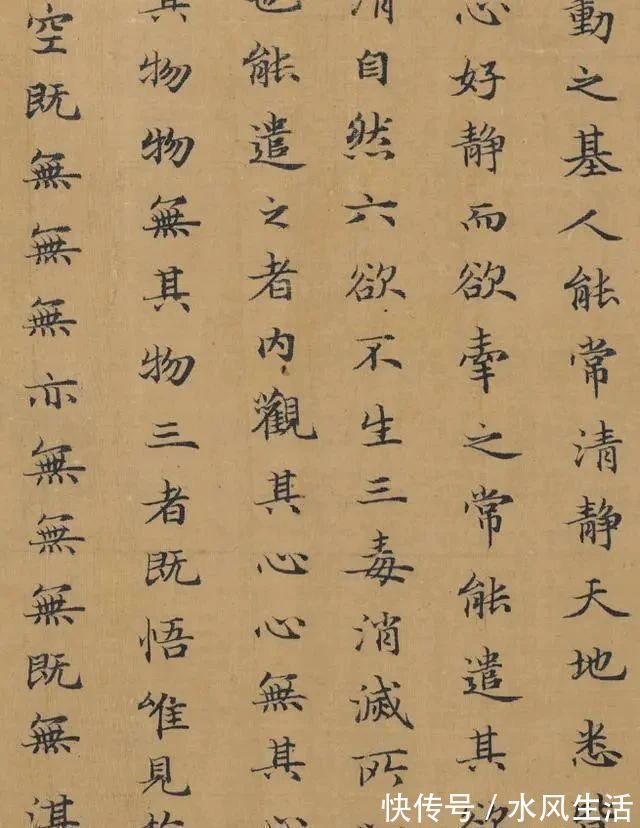 動之基人能常清静天地悉
心好静而欲牽之常能遣其欲
清自然六欲不生三毒消滅所
也能遣之者内觀其心心無其心
其物物無其物三者既悟唯見於
空既無無無亦無無無既無湛
快传号/水风生活